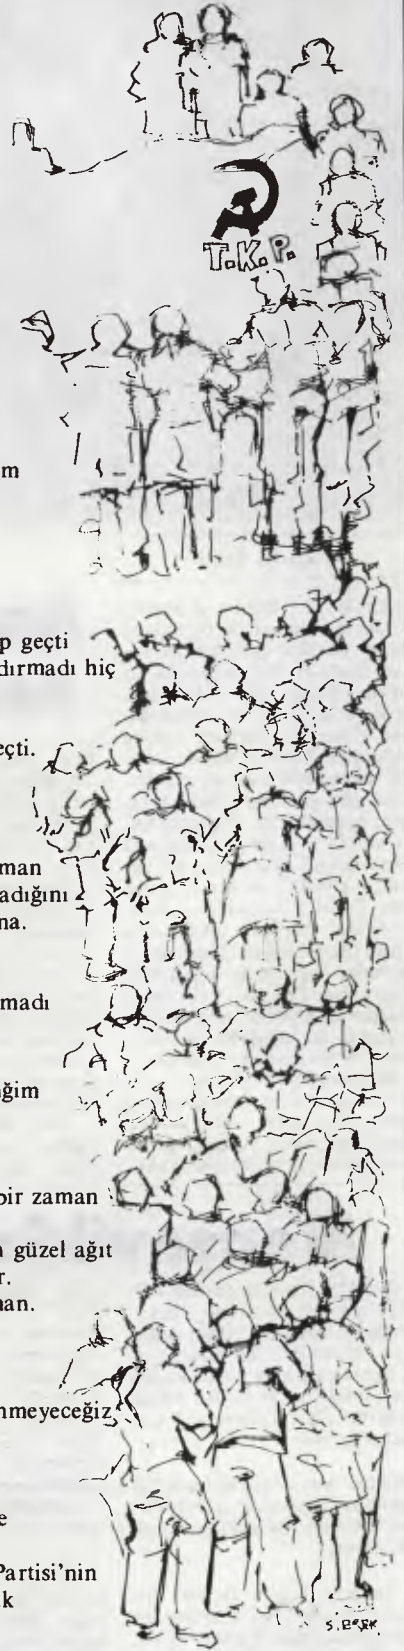 T.K.P.
m
p geçti
dırmadı hiç
eçti.
man
adığını
na.
madı
ğim
bir zaman
n güzel ağıt
r.
nan.
nmeyeceğiz
e
Partisi'nin
ık